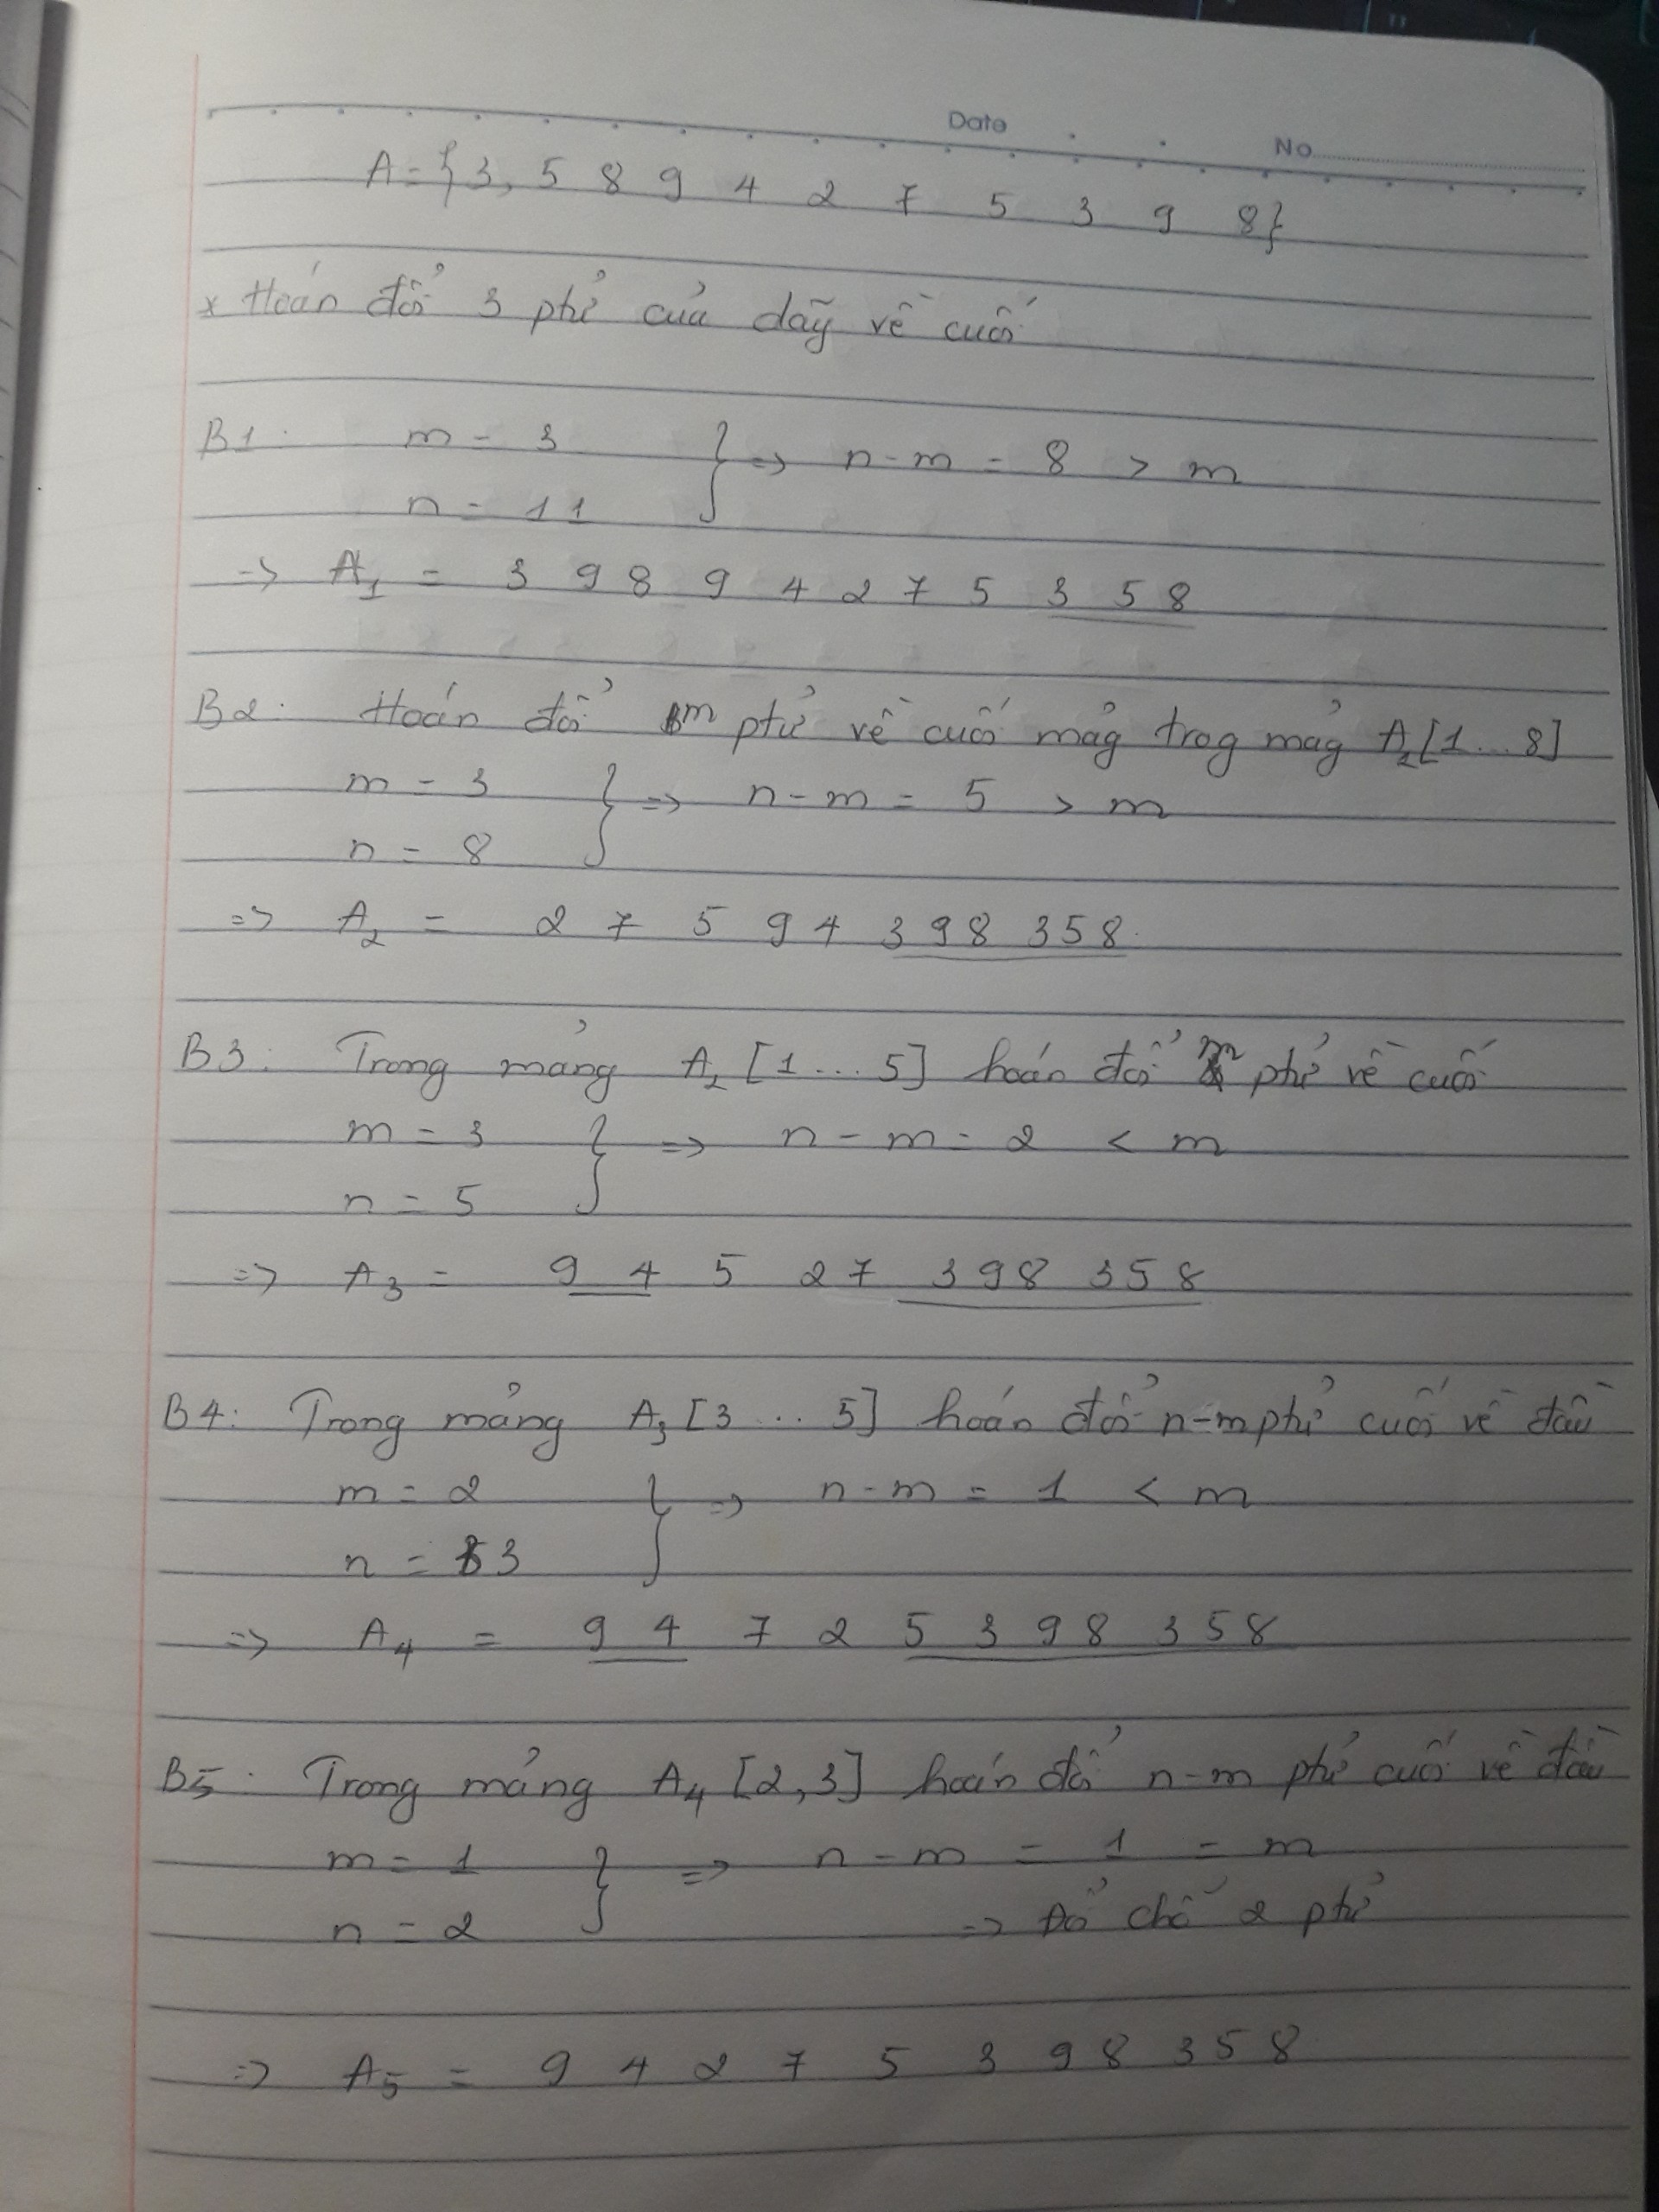 Date No
A = { 3, 5 8 9 4 2 7 5 3 9 8 }
x Hoán đổi 3 ptử của dãy về cuối
B1: m = 3
n = 11 } => n - m = 8 > m
=> A1 = 3 9 8 9 4 2 7 5 3 5 8
B2: Hoán đổi m ptử về cuối mảg trog mảg A2 [1 ... 8]
m = 3
n = 8 } => n - m = 5 > m
=> A2 = 2 7 5 9 4 3 9 8 3 5 8
B3: Trong mảng A2 [1 ... 5] hoán đổi m ptử về cuối
m = 3
n = 5 } => n - m = 2 < m
=> A3 = 9 4 5 2 7 3 9 8 3 5 8
B4: Trong mảng A3 [3 ... 5] hoán đổi n-m ptử cuối về đầu
m = 2
n = 3 } => n - m = 1 < m
=> A4 = 9 4 7 2 5 3 9 8 3 5 8
B5: Trong mảng A4 [2, 3] hoán đổi n-m ptử cuối về đầu
m = 1
n = 2 } => n - m = 1 = m
=> Đổi chỗ 2 ptử
=> A5 = 9 4 2 7 5 3 9 8 3 5 8